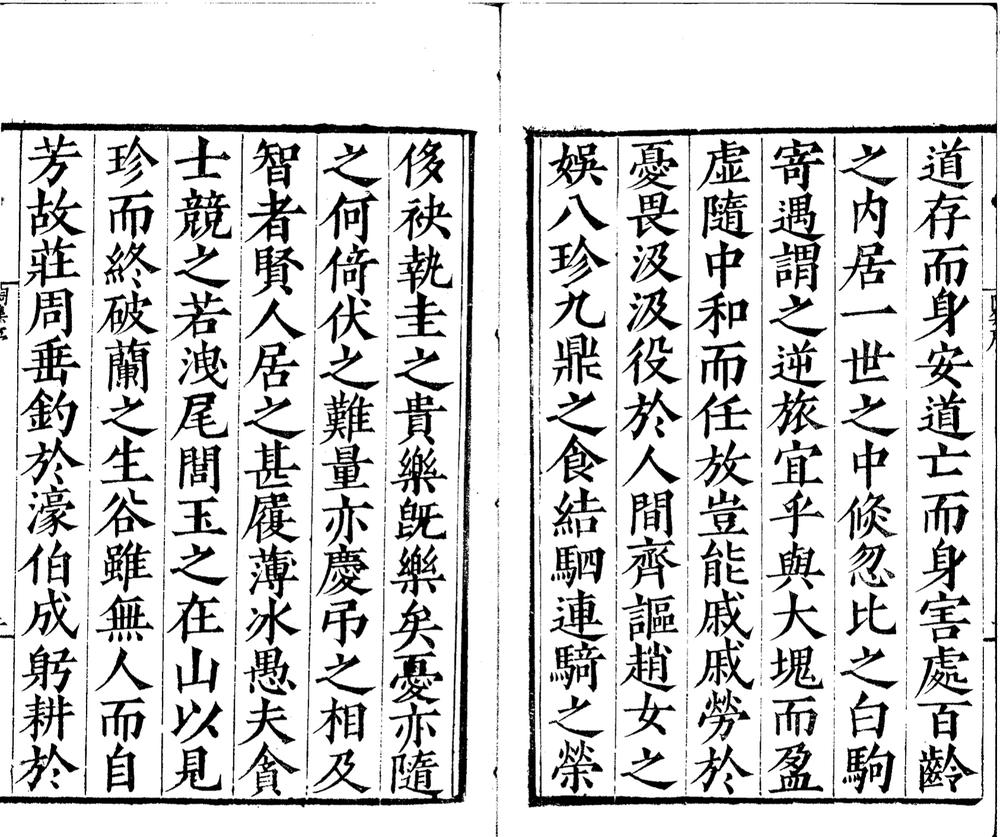 道存而身安道亡而身害處百齡
之内居一世之中倐忽比之白駒
寄遇謂之逆旅宜乎與大塊而盈
虛隨中和而任放豈能戚戚勞於
憂畏汲汲役於人間齊謳趙女之
娛八珍九鼎之食結駟連騎之榮
侈袂執圭之貴樂旣樂矣憂亦隨
之何倚伏之難量亦慶弔之相及
智者賢人居之甚履薄冰愚夫貪
士競之若洩尾閭玉之在山以見
珍而終破蘭之生谷雖無人而自
芳故莊周垂釣於濠伯成躬耕於